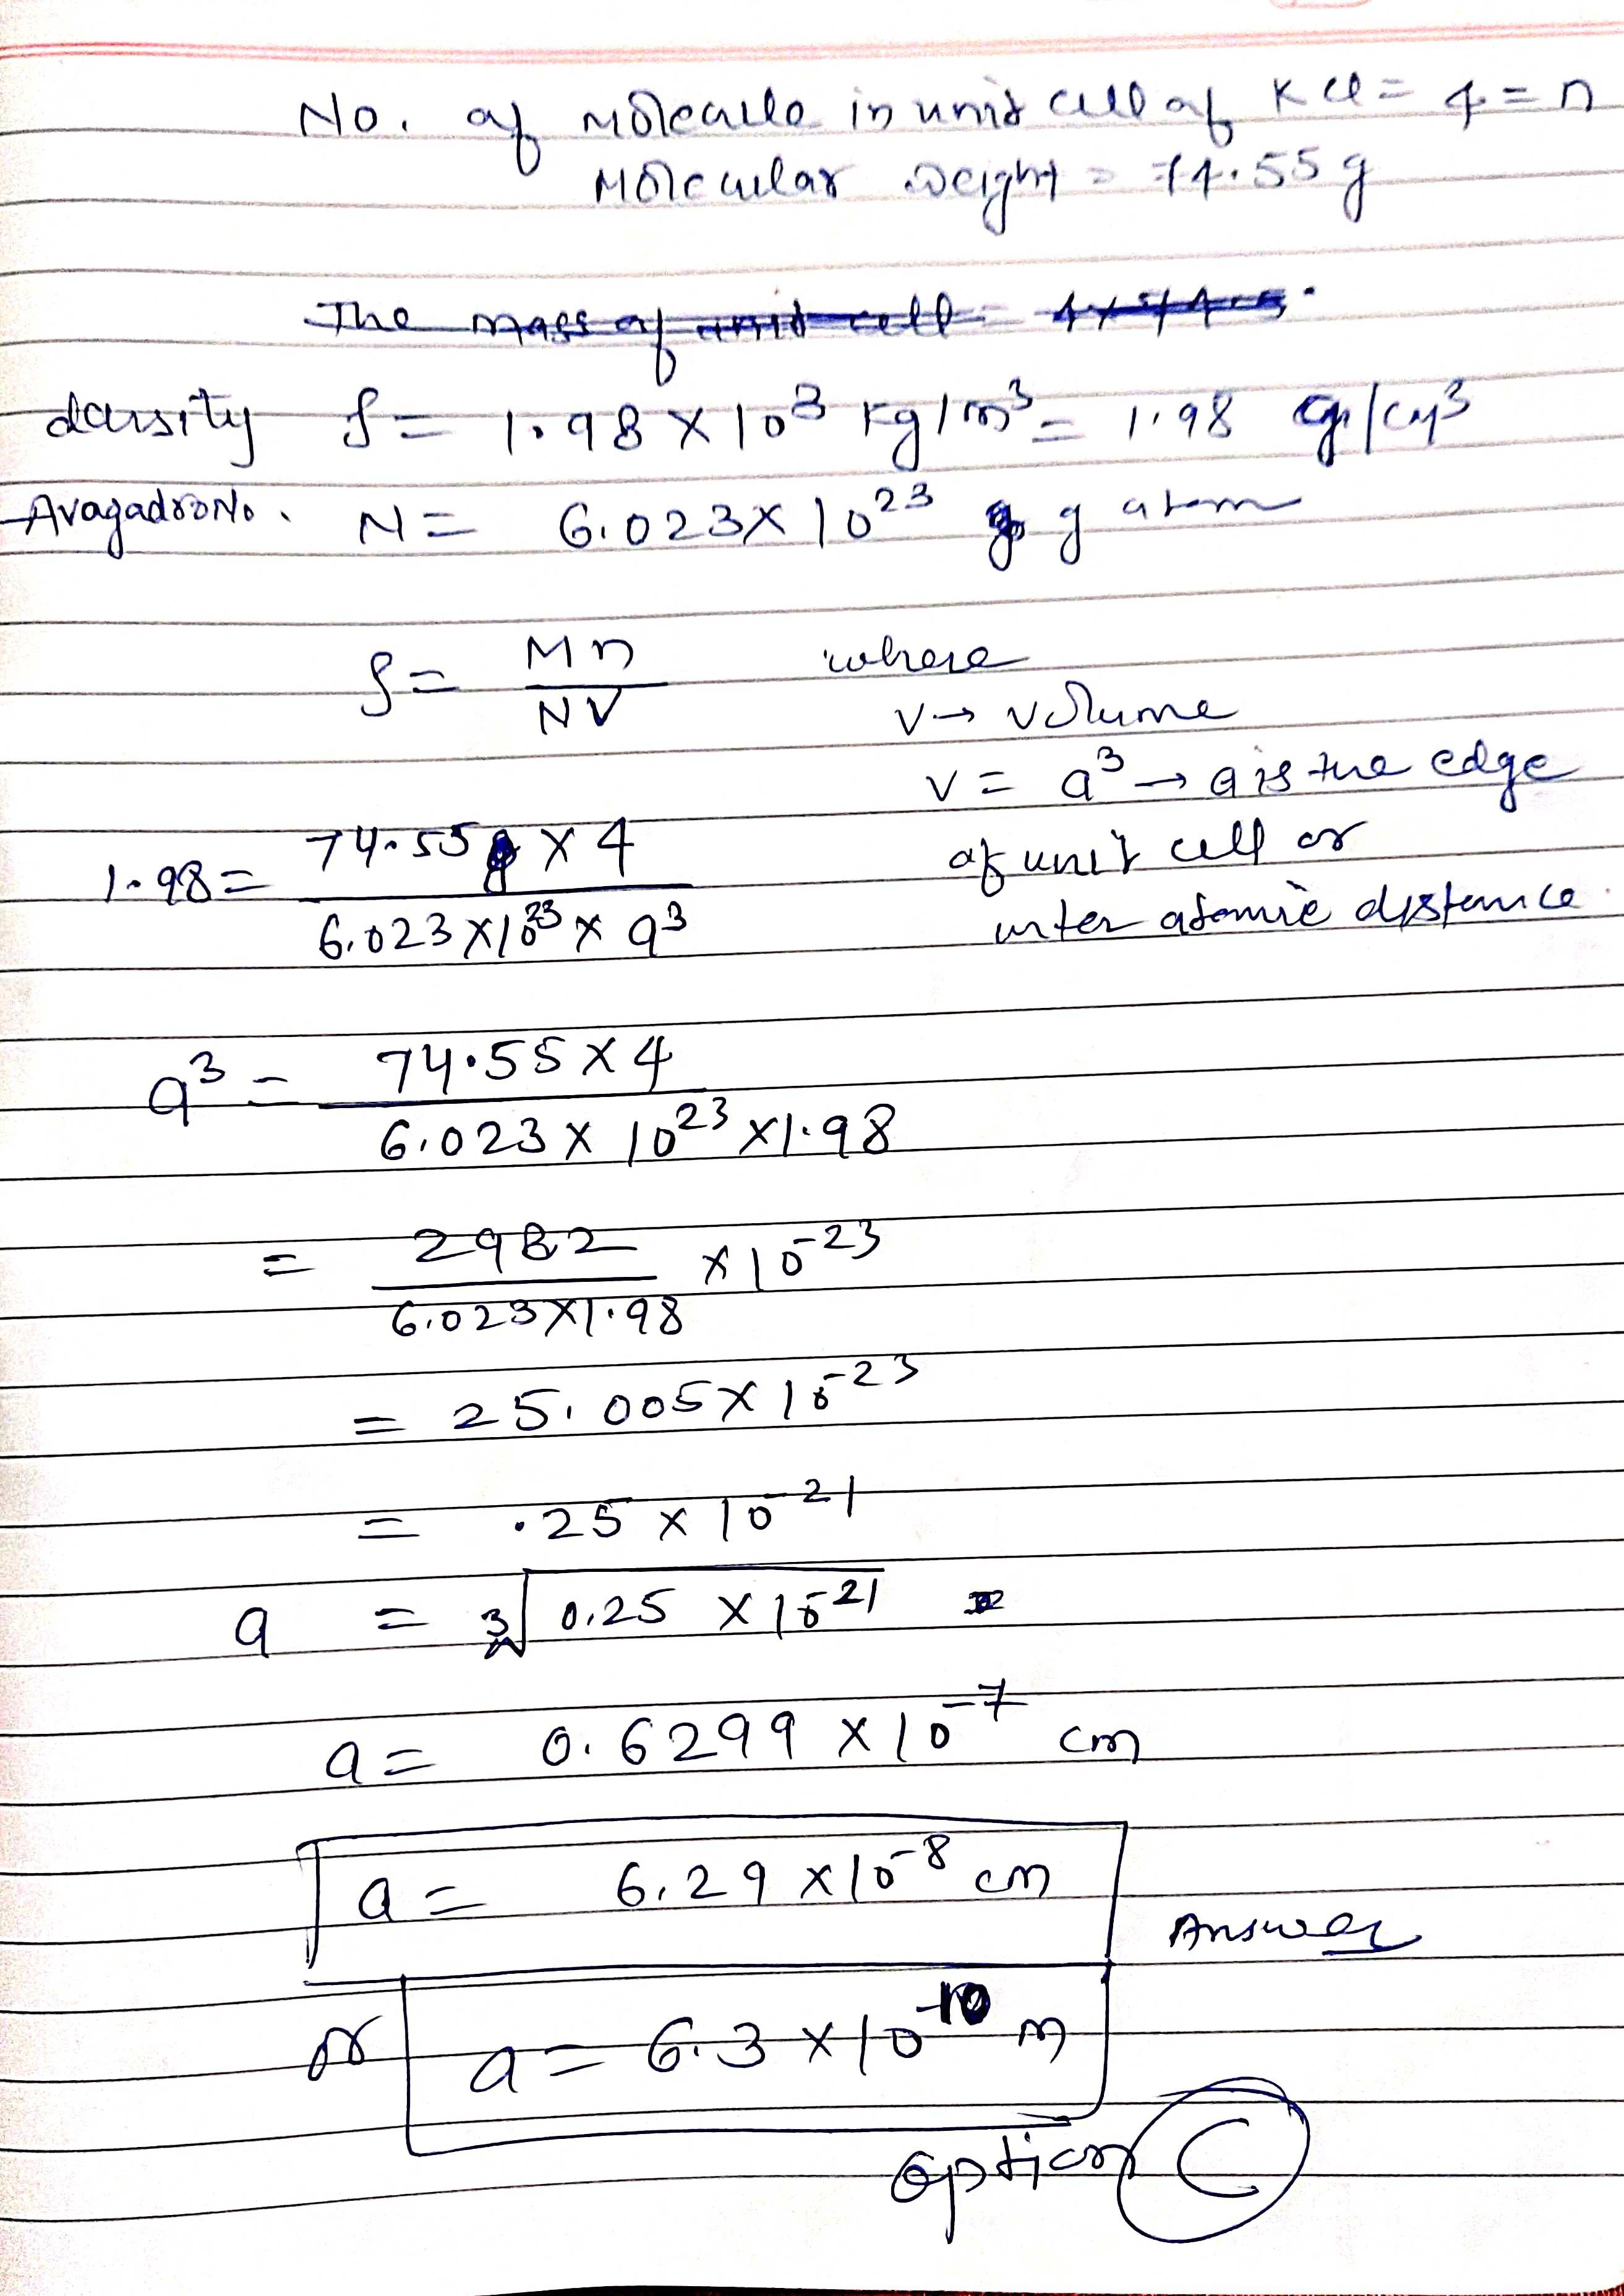 No. of Molecule in unit cell of KCl = 4 = n
Molecular weight = 74.55 g
The mass of unit cell =
density ρ = 1.98 × 10³ kg/m³ = 1.98 g/cm³
Avagadro No. N = 6.023 × 10²³ g atom
ρ = Mn / NV where
V → volume
V = a³ → a is the edge
of unit cell or
inter atomic distance.
1.98 = 74.55 × 4 / 6.023 × 10²³ × a³
a³ = 74.55 × 4 / 6.023 × 10²³ × 1.98
= 2982 / 6.023 × 1.98 × 10⁻²³
= 25.005 × 10⁻²³
= .25 × 10⁻²¹
a = ³√0.25 × 10⁻²¹
a = 0.6299 × 10⁻⁷ cm
a = 6.29 × 10⁻⁸ cm
Answer
or a = 6.3 × 10⁻¹⁰ m
option C